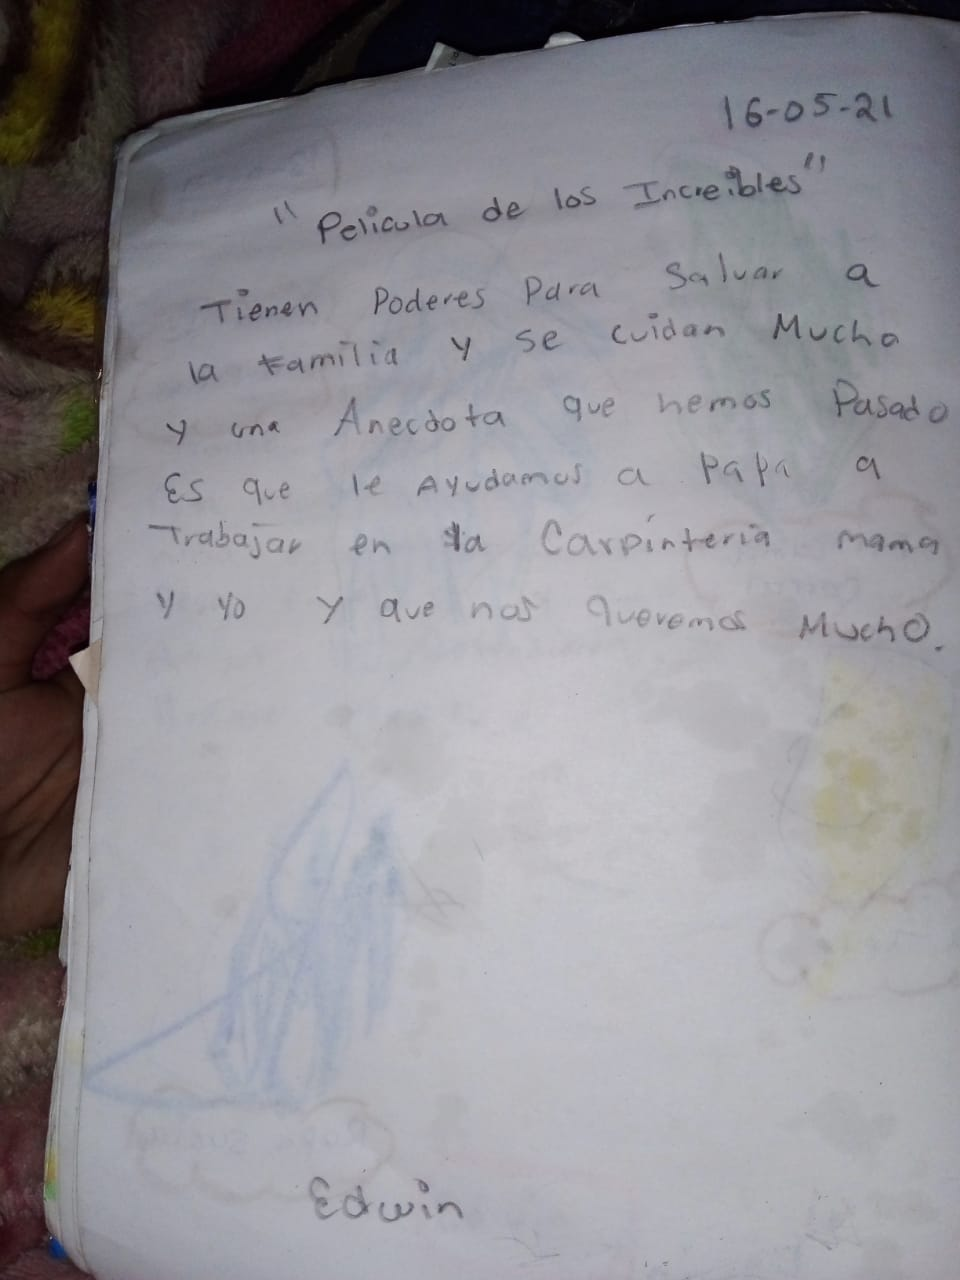 16-05-21
"Pelicula de los Increibles"
Tienen Poderes Para Salvar a
la familia y se cuidan Mucho
y una Anecdota que hemos Pasado
Es que le Ayudamos a Papa a
Trabajar en la Carpinteria mama
y yo y que nos queremos Mucho.
Edwin